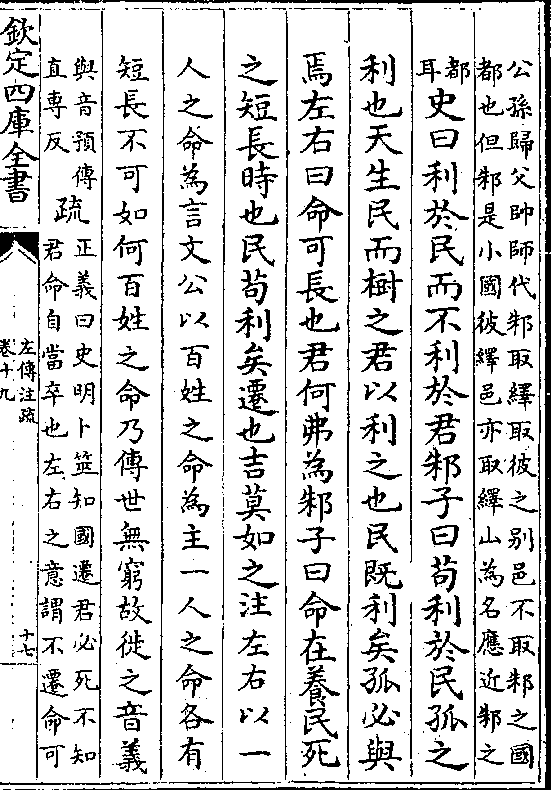 公孫歸父帥師代邾取繹取彼之别邑不取邾之國
都也但邾是小國彼繹邑亦取繹山為名應近邾之
都
耳
史曰利於民而不利於君邾子曰苟利於民孤之
利也天生民而樹之君以利之也民既利矣孤必與
焉左右曰命可長也君何弗為邾子曰命在養民死
之短長時也民苟利矣遷也吉莫如之注左右以一
人之命為言文公以百姓之命為主一人之命各有
短長不可如何百姓之命乃傳世無窮故徙之音義
與音預傳
直専反
疏
正義曰史明卜筮知國遷君必死不知
君命自當卒也左右之意謂不遷命可
欽定四庫全書
左傳注疏
卷十九
十七